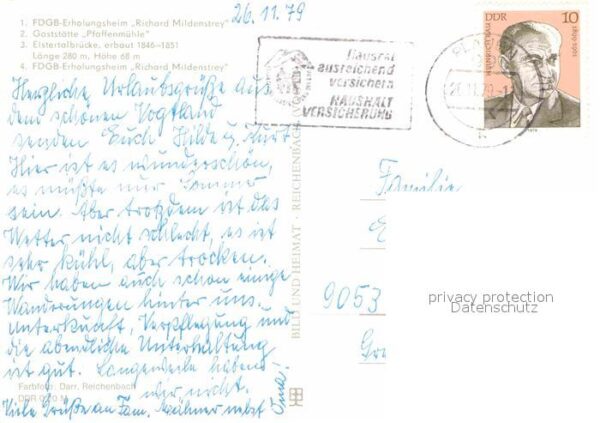 26.11.79
1. FDGB-Erholungsheim „Richard Mildenstrey"
2. Gaststätte „Pfaffenmühle"
3. Elstertalbrücke, erbaut 1846–1851
Länge 280 m, Höhe 68 m
4. FDGB-Erholungsheim „Richard Mildenstrey"
Herzliche Urlaubsgrüße aus
dem schönen Vogtland
senden Euch Hilde u. Kurt
Hier ist es wunderschön,
es müßte nur Sommer
sein. Aber trotzdem ist das
Wetter nicht schlecht, es ist
sehr kühl, aber trocken.
Wir haben auch schon einige
Wanderungen hinter uns.
Unterkunft, Verpflegung und
die abendliche Unterhaltung
ist gut. Langeweile haben
wir nicht.
Viele Grüße an Fam. nebst
Farbfoto: Darr, Reichenbach
DDR M
BILD UND HEIMAT · REICHENBACH
Hausrat
ausreichend
versichern
HAUSHALT
VERSICHERUNG
DDR 10
Familie
E
9053
privacy protection
Datenschutz